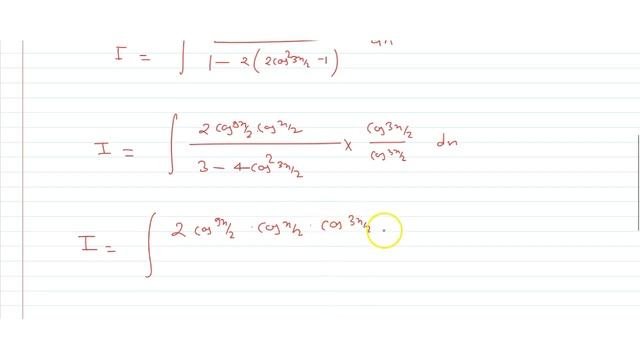 I = ∫ 1 - 2(2cos²3x/2 - 1)
I = ∫ 2 cos9x/2 cosx/2 / 3 - 4cos²3x/2 × cos3x/2 / cos3x/2 dx
I = ∫ 2 cos9x/2 · cosx/2 · cos3x/2 ·